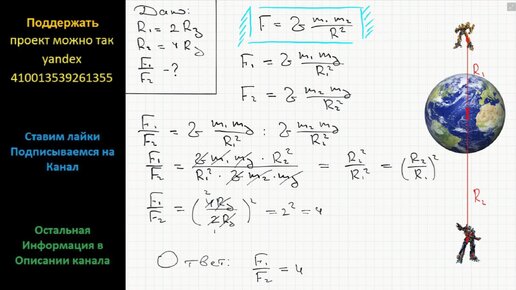 Поддержать
проект можно так
yandex
410013539261355
Ставим лайки
Подписываемся на
Канал
Остальная
Информация в
Описании канала
Дано:
R₁ = 2Rз
R₂ = 4Rз
F₁/F₂ - ?
F = G m₁m₂/R²
F₁ = G m₁mз/R₁²
F₂ = G m₂mз/R₂²
F₁/F₂ = G m₁mз/R₁² : G m₂mз/R₂²
F₁/F₂ = G m₁mз · R₂²/R₁² · G m₂mз = R₂²/R₁² = (R₂/R₁)²
F₁/F₂ = (4Rз/2Rз)² = 2² = 4
Ответ: F₁/F₂ = 4
R₁
R₂